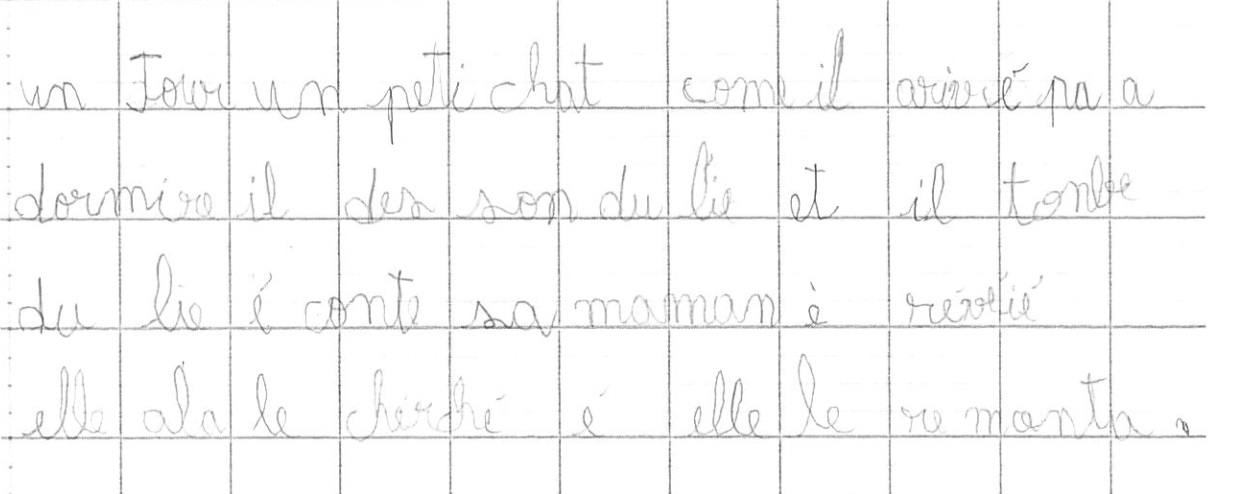 un Jour un peti chat come il arivé pa a
dormire il des son du lie et il tonbe
du lie é conte sa maman è révéié
elle ala le cherché é elle le re manta.